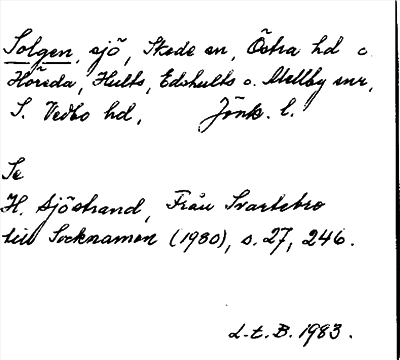 Solgen, sjö, Skede sn, Östra hd o.
Höreda, Hults, Edshults o. Mellby snr,
S. Vedbo hd, Jönk. l.
Se
H. Sjöstrand, Från Svartebro
till Socknamon (1980), s. 27, 246.
L-t. B. 1983.